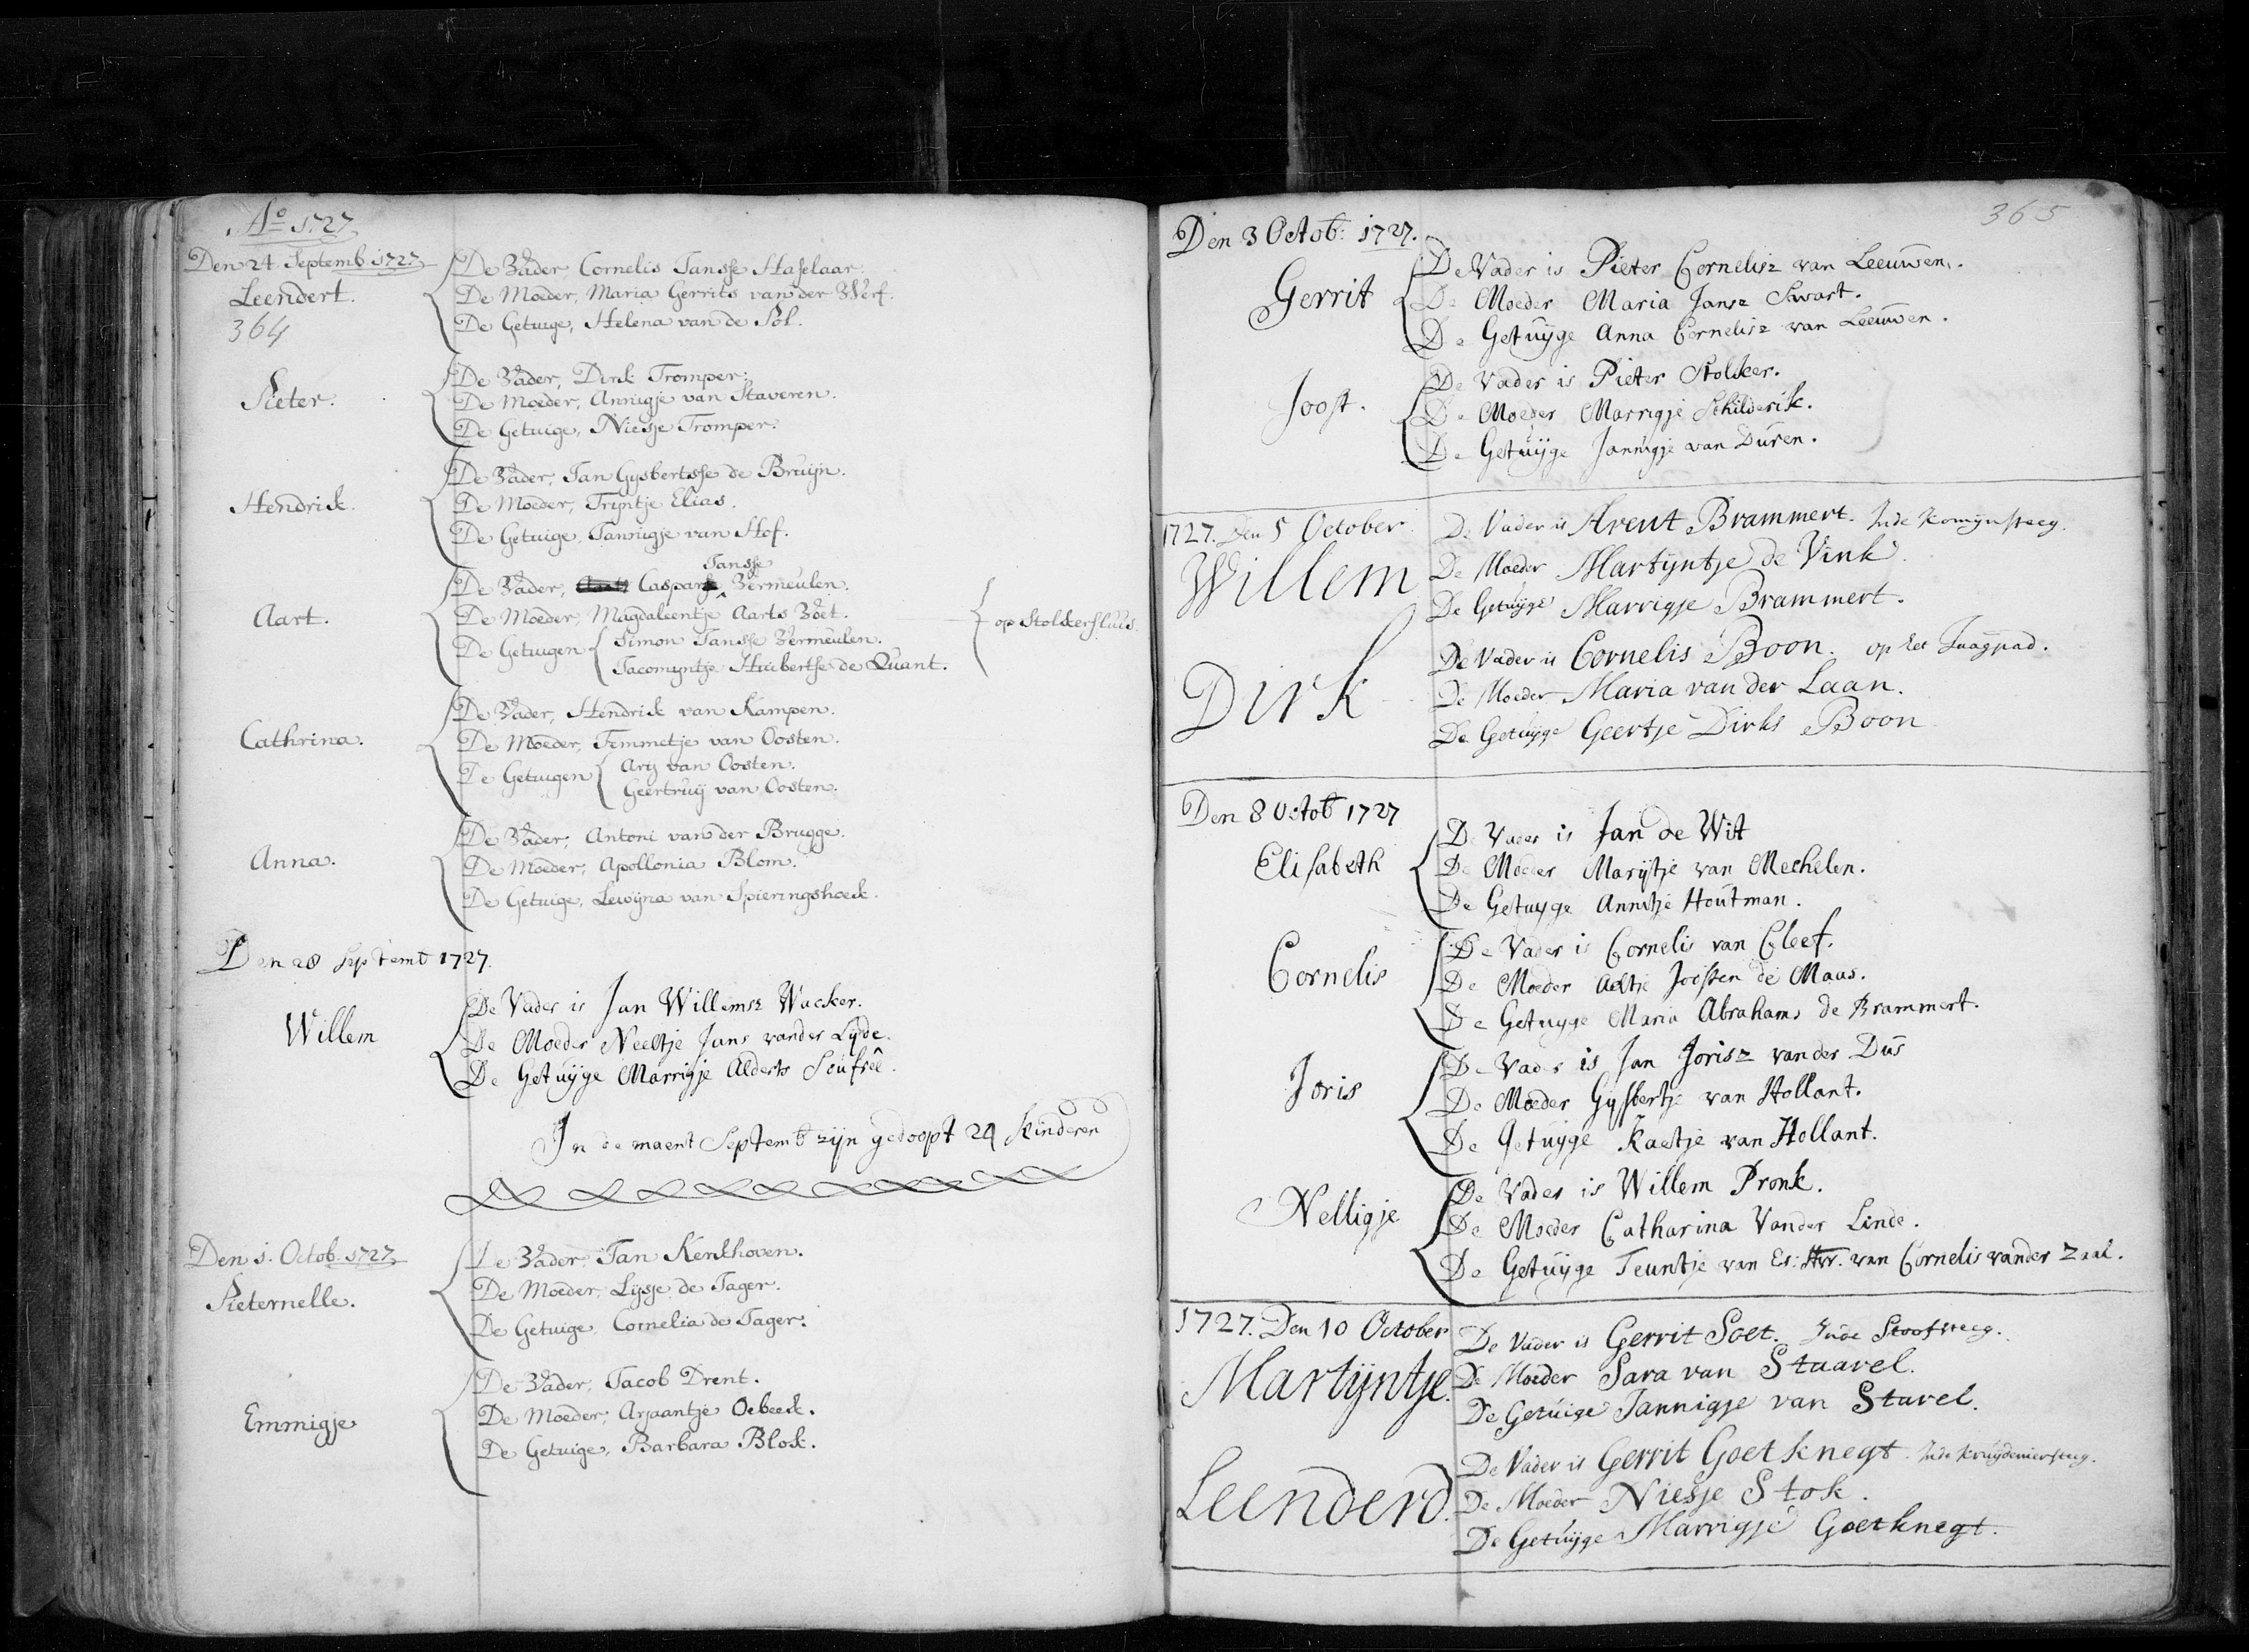 Aº 1727
Den 24 Septemb. 1727
Leendert.
364
De Vader, Cornelis Jansse Haselaar.
De Moeder, Maria Gerrits van der Werf.
De Getuige, Helena van de Pol.
Pieter.
De Vader, Dirk Tromper.
De Moeder, Annigje van Staveren.
De Getuige, Niesje Tromper.
Hendrik.
De Vader, Jan Gysbertsse de Bruijn.
De Moeder, Trijntje Elias.
De Getuige, Jannigje van Hof.
Aart.
Jansse
De Vader, Caspar Vermeulen.
De Moeder, Magdaleentje Aarts Voet.
De Getuigen Simon Jansse Vermeulen.
Jacomyntje Huibertse de Quant.
op Stolkersluis.
Cathrina.
De Vader, Hendrik van Kampen.
De Moeder, Femmetje van Oosten.
De Getuigen Ary van Oosten.
Geertruij van Oosten.
Anna.
De Vader, Antoni van der Brugge.
De Moeder, Apollonia Blom.
De Getuige, Lewijna van Spieringshoek.
Den 28 Septemb 1727.
Willem
De Vader is Jan Willemsz Wacker.
De Moeder Neeltje Jans vander Lyde.
De Getuijge Marrigje Alderts
In de maent Septemb zijn gedoopt 24 Kinderen
Den 1. Octob. 1727
Pieternelle.
De Vader, Jan Kerkhoven.
De Moeder, Lijsje de Jager.
De Getuige, Cornelia de Jager.
Emmigje
De Vader, Jacob Drent.
De Moeder, Arjaantje Oebeek.
De Getuige, Barbara Blok.
365
Den 3 Octob: 1727.
Gerrit
De Vader is Pieter Cornelisz van Leeuwen.
De Moeder Maria Jansz Swart.
De Getuijge Anna Cornelisz van Leeuwen.
Joost.
De Vader is Pieter Stolker.
De Moeder Marrigje Schilderik.
De Getuijge Jannigje van Duren.
1727. Den 5 October
Willem
De Vader is Arent Brammert. Inde Komijnsteeg.
De Moeder Martijntje de Vink.
De Getuijge Marrigje Brammert.
Dirk
De Vader is Cornelis Boon. op het Jaagpad.
De Moeder Maria van der Laan.
De Getuijge Geertje Dirks Boon
Den 8 Octob 1727
Elisabeth
De Vader is Jan de Wit
De Moeder Marijtje van Mechelen.
De Getuijge Annitje Houtman.
Cornelis
De Vader is Cornelis van Cleef.
De Moeder Aeltje Joosten de Maas.
De Getuijge Maria Abrahams de Brammert.
Joris
De Vader is Jan Jorisz vander Dus
De Moeder Gysbertje van Hollant.
De Getuijge Kaetje van Hollant.
Nelligje
De Vader is Willem Pronk.
De Moeder Catharina Vander Linde.
De Getuijge Teuntje van Es: Hvr. van Cornelis vander Zaal.
1727. Den 10 October
Martijntje.
De Vader is Gerrit Soet. Inde Stoofsteeg.
De Moeder Sara van Staavel.
De Getuige Jannigje van Stavel.
Leenderd.
De Vader is Gerrit Goetknegt. Inde Kruijdeniersteeg.
De Moeder Niesje Stok.
De Getuijge Marrigje Goetknegt.